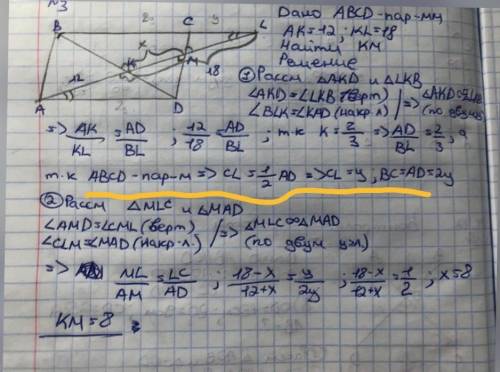 N3
B 2 C y L
x
K M
12 18
A D
Дано ABCD-пар-мм
AK=12; KL=18
Найти KM
Решение
① Рассм △AKD и △LKB
∠AKD=∠LKB (верт)
∠BLK=∠KAD (накр л) /=> △AKD∾△LKB (по двум
=> AK/KL = AD/BL ; 12/18 = AD/BL ; т.к K=2/3 => AD/BL = 2/3, а
т.к ABCD-пар-м => CL=1/2 AD => CL=y; BC=AD=2y
② Рассм △MLC и △MAD
∠AMD=∠CML (верт)
∠CLM=∠MAD (накр-л.) /=> △MLC∾△MAD (по двум угл.)
=> ML/AM = LC/AD ; 18-x/12+x = y/2y ; 18-x/12+x = 1/2 ; x=8
KM=8